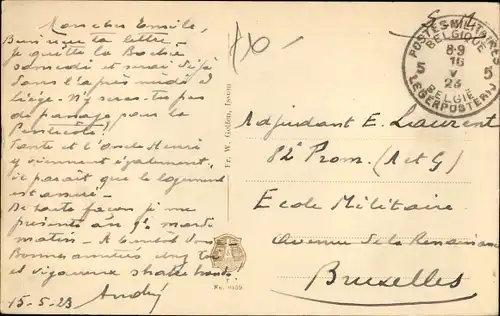 Mon cher Emile,
Bien reçu ta lettre.
Je quitte la Boche
samedi et serai déjà
dans l'après midi à
Liège. N'y seras-tu pas
de passage pour la
Pentecôte?
Tante et l'Oncle Henri
y viennent également,
il paraît que le logement
est assuré.
De toute façon je me
présente au 9e mardi
matin. A bientôt donc
Bonnes amitiés
et vigoureux shake hands.
15-5-23 André
S.M.
POSTES MILITAIRES
BELGIQUE
8-9
16
V
23
BELGIË
LEGERPOSTERIJ
5 5
Adjudant E. Laurent
82e Prom. (A et G)
Ecole Militaire
Avenue de la Renaissance
Bruxelles
Fr. W. Goffon, Eupen
No. 0439